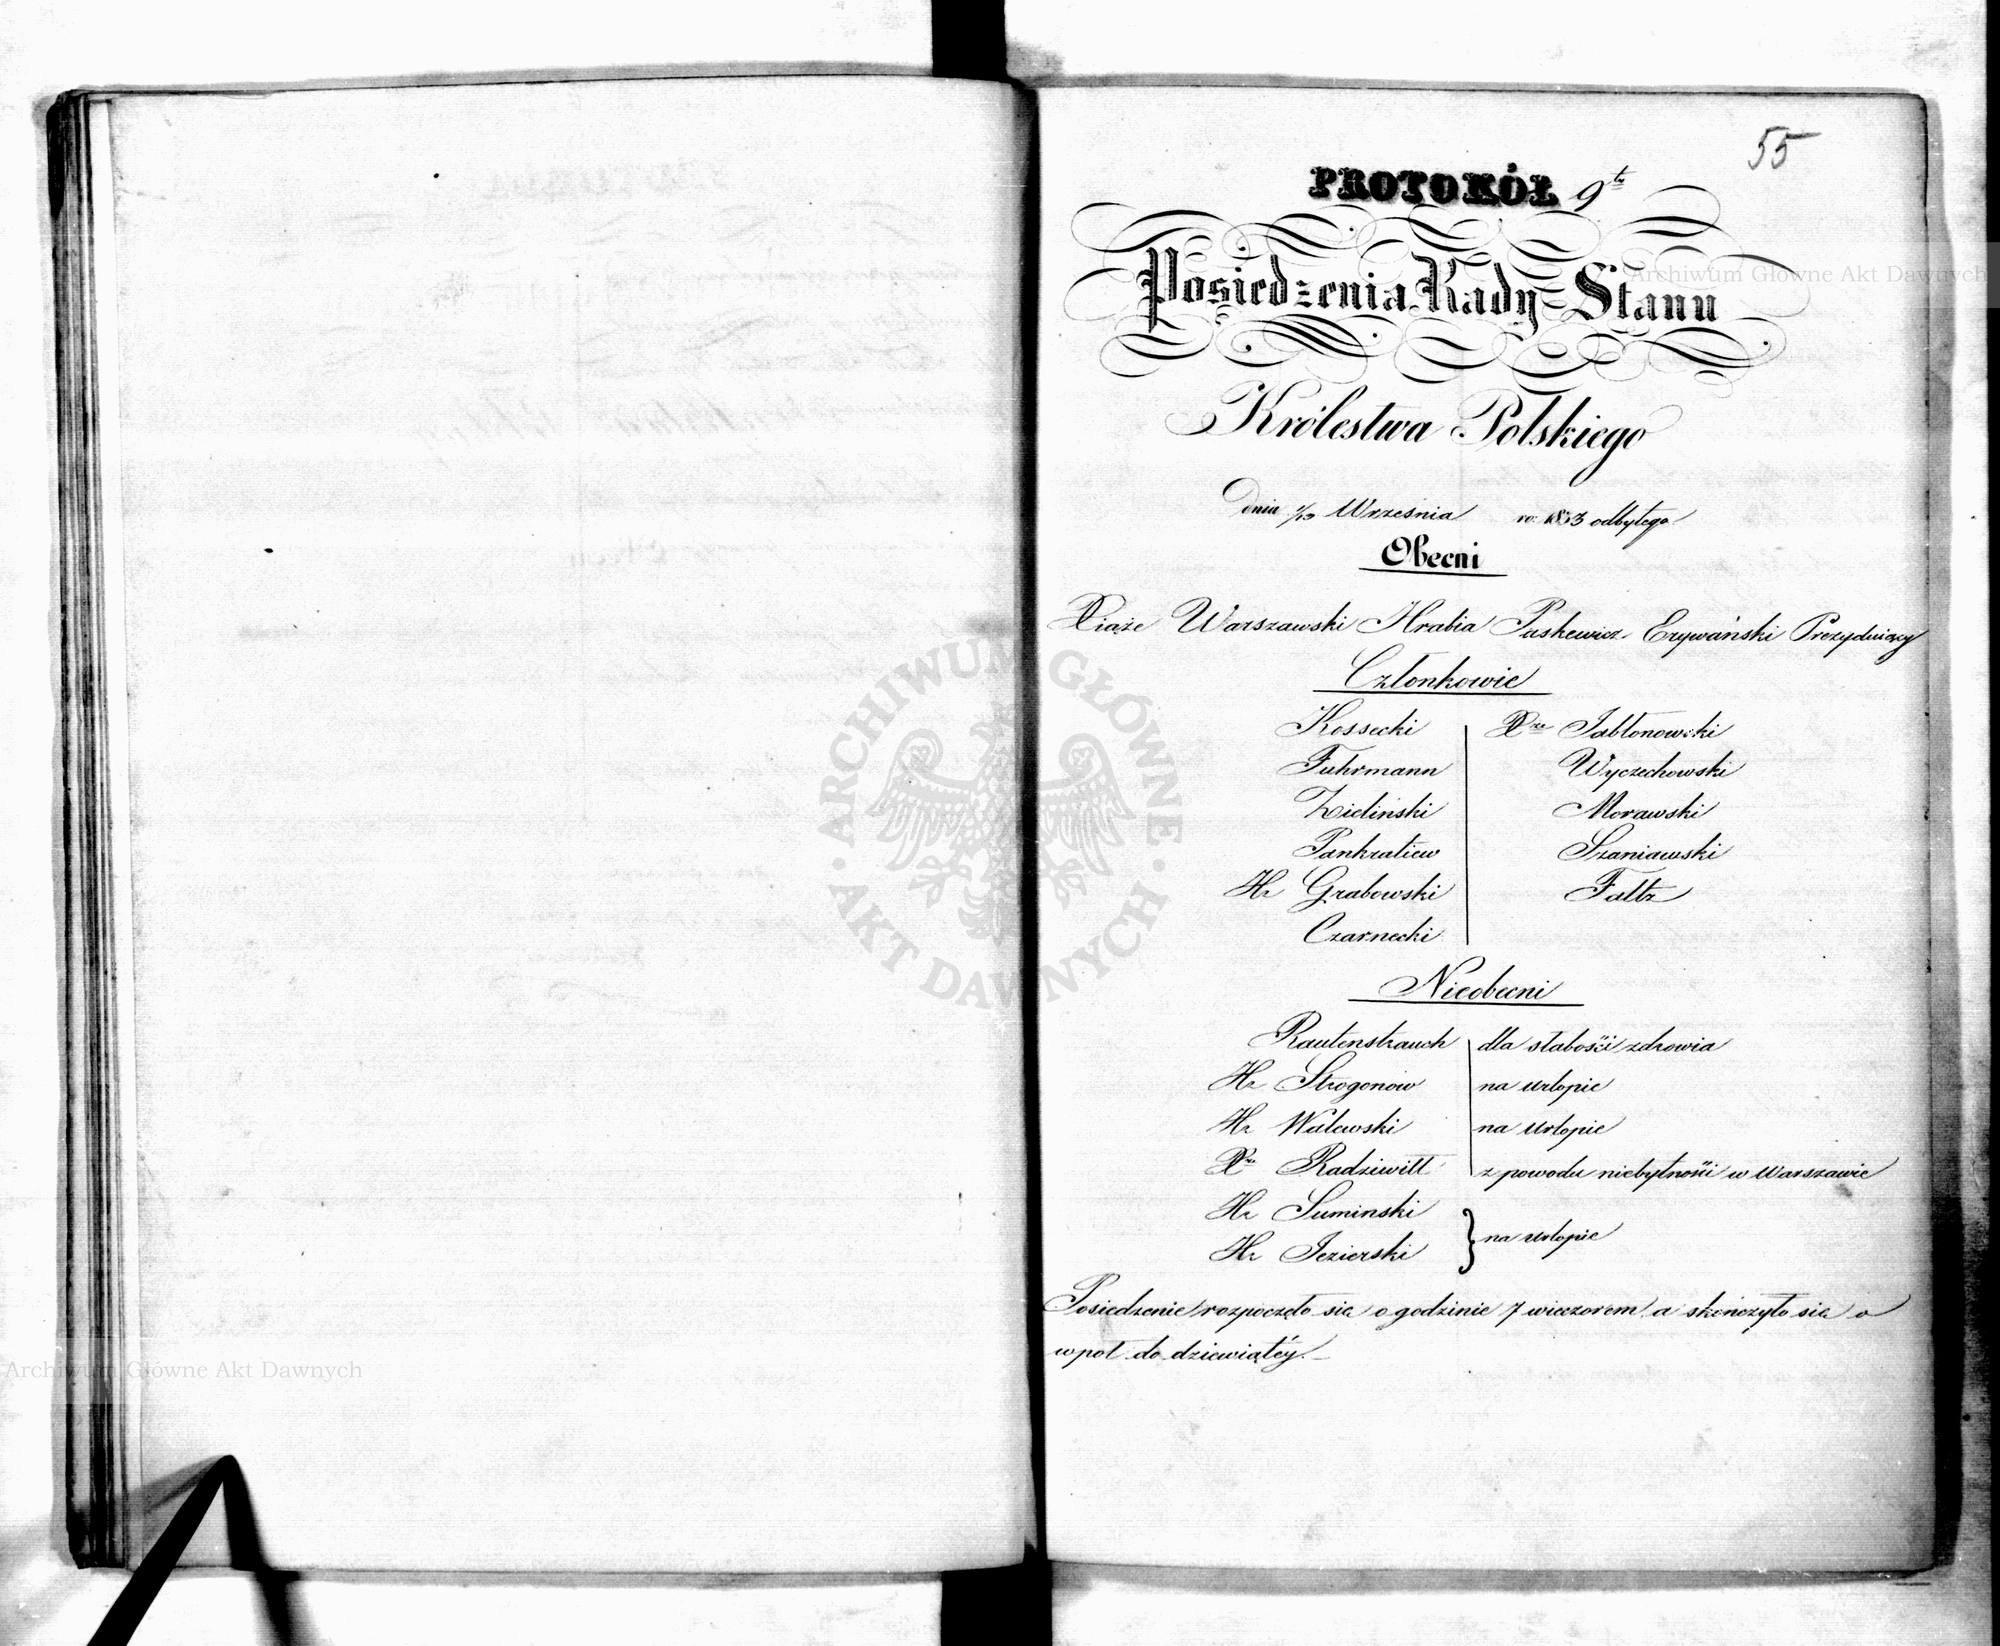 55
PROTOKÓŁ 9ty
Posiedzenia Rady Stanu
Królestwa Polskiego
dnia 1/13 Września ro: 1833 odbytego
Obecni
Xiąże Warszawski Hrabia Paskewicz Erywański Prezyduiący
Członkowie
Kossecki Xże Jabłonowski
Fuhrmann Wyczechowski
Zieliński Morawski
Pankratiew Szaniawski
Hr Grabowski Faltz
Czarnecki
Nieobecni
Rautenstrauch dla słabości zdrowia
Hr Strogonow na urlopie
Hr Walewski na urlopie
Xże Radziwiłł z powodu niebytności w Warszawie
Hr Suminski
Hr Jezierski } na urlopie
Posiedzenie rozpoczęło się o godzinie 7 wieczorem, a skończyło się o
wpół do dziewiątéy.
ARCHIWUM GŁÓWNE AKT DAWNYCH
Archiwum Główne Akt Dawnych
Archiwum Główne Akt Dawnych